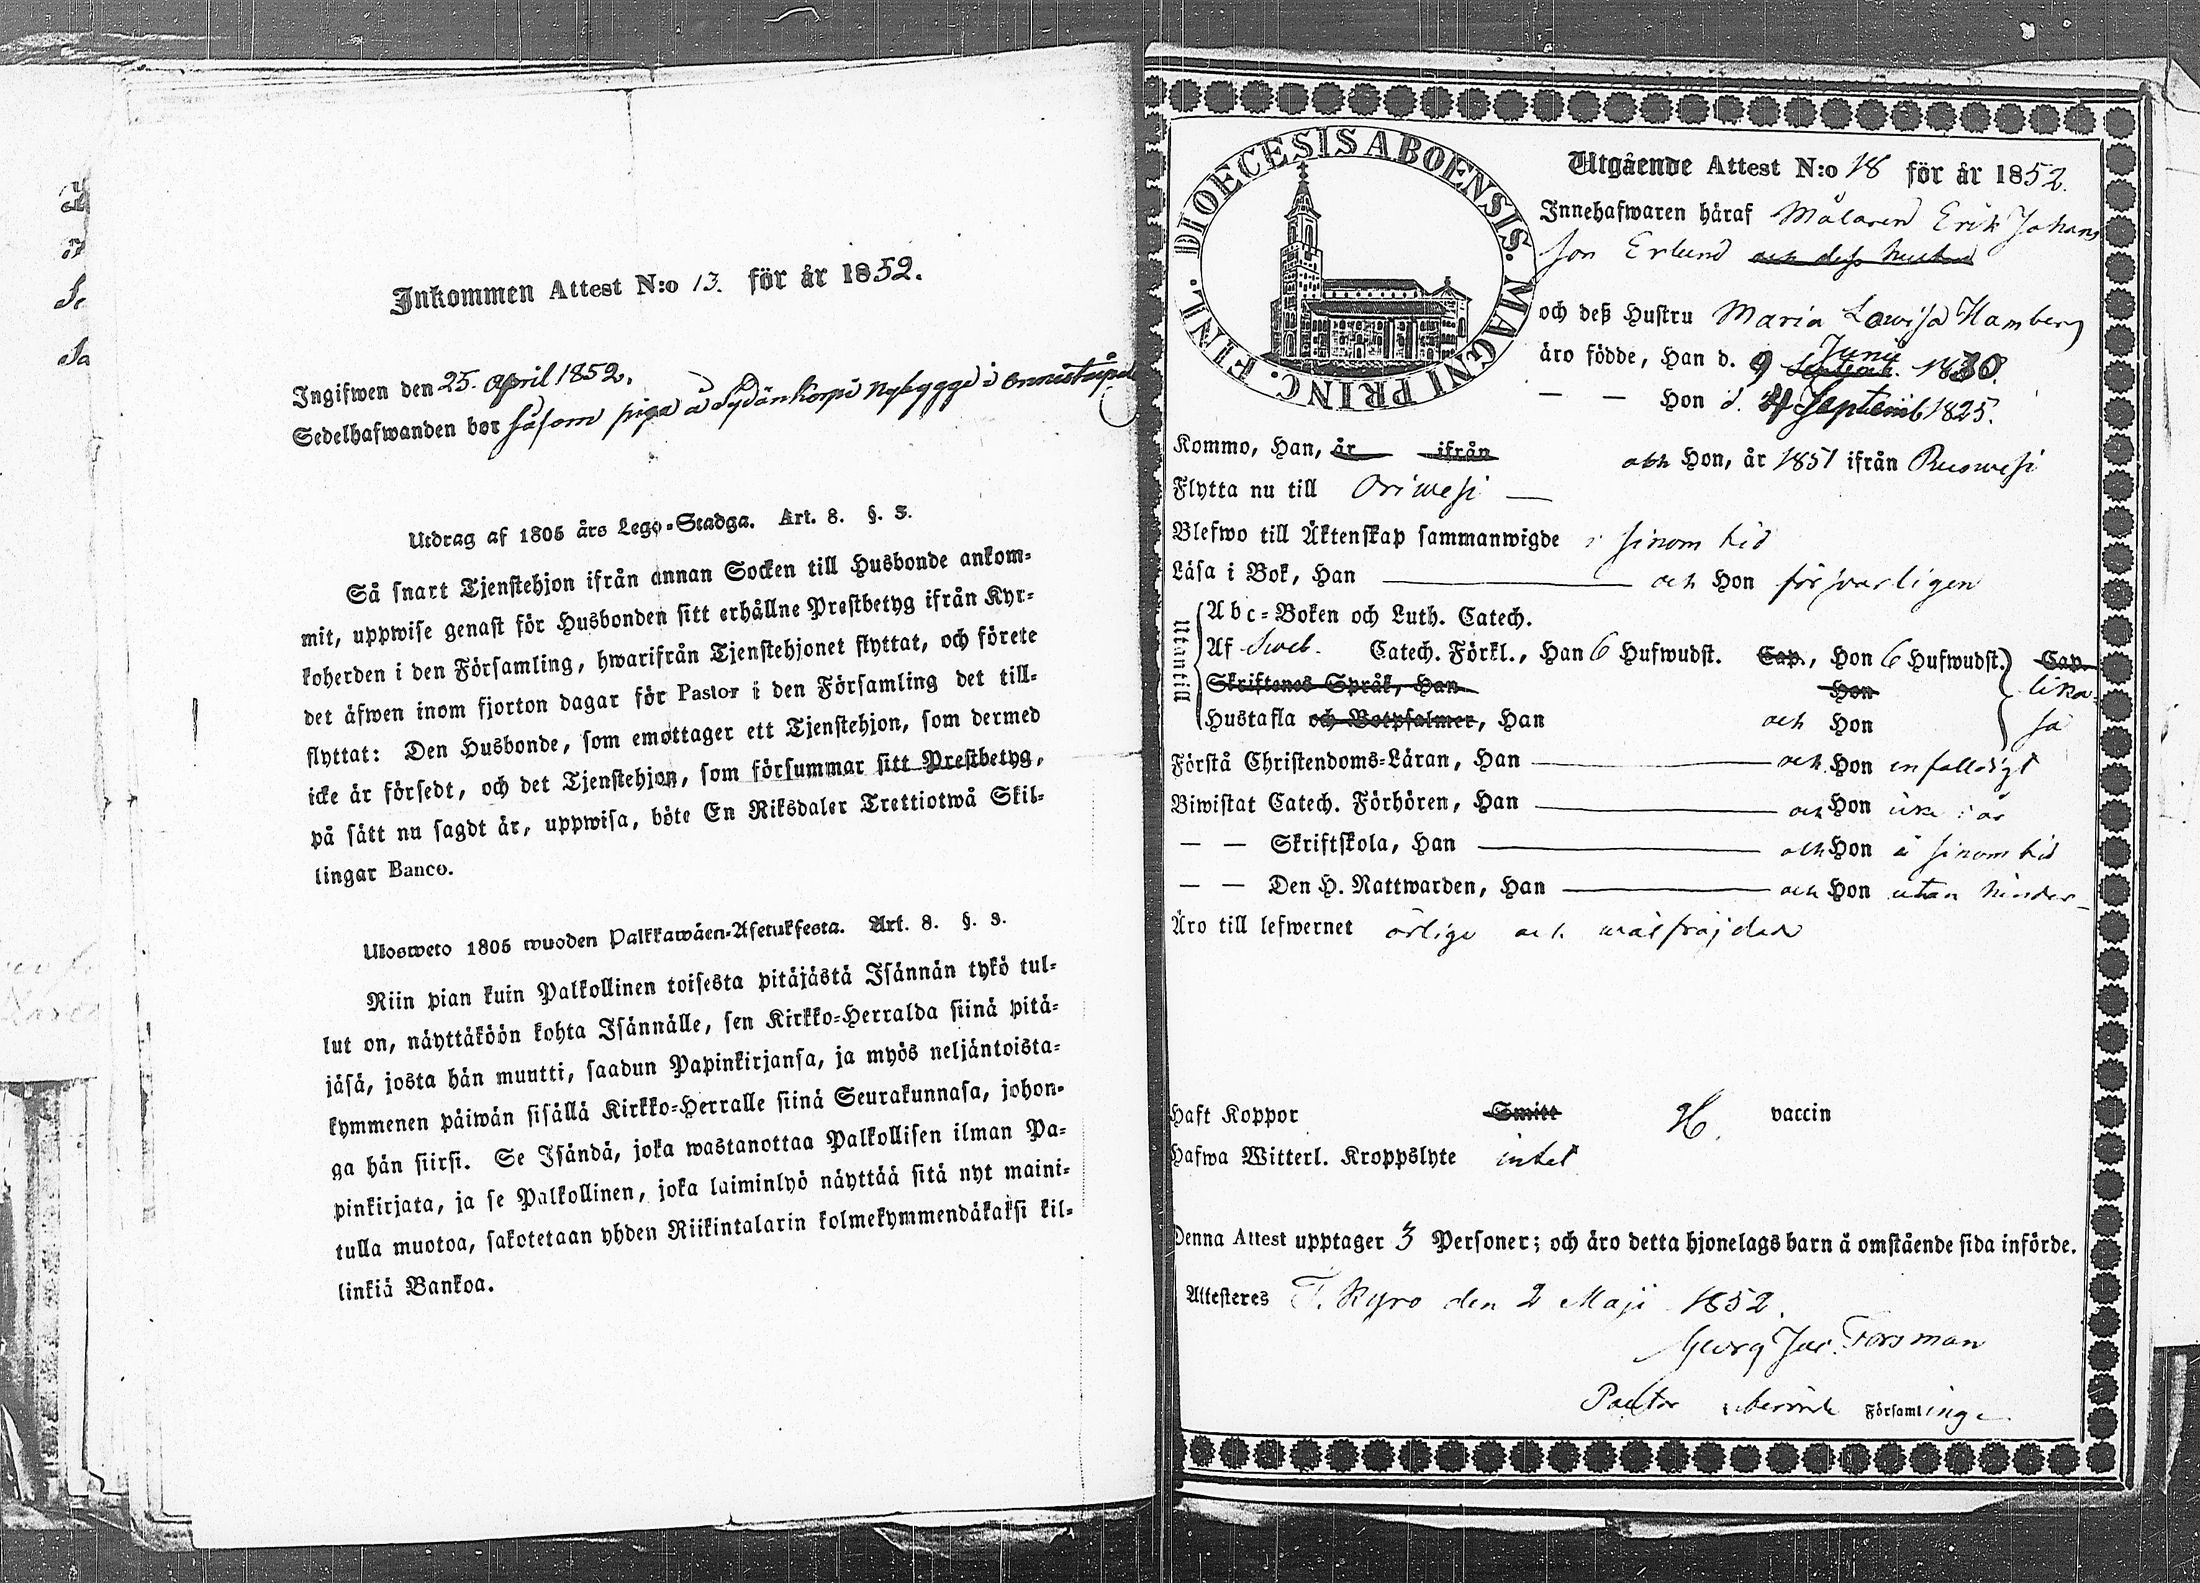 Inkommen Attest N:o 13. för år 1852.
Ingifwen den 25. April 1852.
Sedelhafwanden bor såsom piga å Sydänkorpi Nybygge i
Utdrag af 1805 års Lego-Stadga. Art. 8. §. 3.
Så snart Tjenstehjon ifrån annan Socken till Husbonde ankom-
mit, uppwise genast för Husbonden sitt erhållne Prestbetyg ifrån Kyr-
koherden i den Församling, hwarifrån Tjenstehjonet flyttat, och förete
det äfwen inom fjorton dagar för Pastor i den Församling det till-
flyttat: Den Husbonde, som emottager ett Tjenstehjon, som dermed
icke är försedt, och det Tjenstehjon, som försummar sitt Prestbetyg,
på sätt nu sagdt är, uppwisa, böte En Riksdaler Trettiotwå Skil-
lingar Banco.
Ulosweto 1805 wuoden Palkkawäen-Asetuksesta. Art. 8. §. 3.
Niin pian kuin Palkollinen toisesta pitäjästä Isännän tykö tul-
lut on, näyttäköön kohta Isännälle, sen Kirkko-Herralda siinä pitä-
jäsä, josta hän muutti, saadun Papinkirjansa, ja myös neljäntoista-
kymmenen päiwän sisällä Kirkko-Herralle siinä Seurakunnasa, johon-
ga hän siirsi. Se Isändä, joka wastanottaa Palkollisen ilman Pa-
pinkirjata, ja se Palkollinen, joka laiminlyö näyttää sitä nyt maini-
tulla muotoa, sakotetaan yhden Riikintalarin kolmekymmendäkaksi kil-
linkiä Bankoa.
DIOECESIS ABOENSIS. MAGNI PRINC. FINL.
Utgående Attest N:o 18 för år 1852.
Innehafwaren häraf Målaren Erik Johans
son Erlund och dess hustru
och deß Hustru Maria Lowisa Hamberg
äro födde, Han d. 9 Juny 1830.
— — Hon d. Septemb 1825.
Kommo, Han, år ifrån och Hon, år 1851 ifrån Ruowesi
Flytta nu till Oriwesi —
Blefwo till Äktenskap sammanwigde i sinom tid
Läsa i Bok, Han — och Hon förswarligen
Utantill
Abc-Boken och Luth. Catech.
Af Sweb. Catech. Förkl., Han 6 Hufwudst. Cap., Hon 6 Hufwudst. Cap.
Skriftenes Språk, Han Hon lika-
Hustafla och Botpsalmer, Han och Hon så
Förstå Christendoms-Läran, Han — och Hon enfalldigt
Biwistat Catech. Förhören, Han — och Hon icke i år
— — Skriftskola, Han — och Hon i sinom tid
— — Den H. Nattwarden, Han — och Hon utan hinder
Äro till lefwernet ärlige och wälfräjdade
Haft Koppor Smitt H. vaccin
Hafwa Witterl. Kroppslyte intet
Denna Attest upptager 3 Personer; och äro detta hjonelags barn å omstående sida införde.
Attesteres T. Kyro den 2 Maji 1852.
Georg Jac. Forsman
Pastor Församlinge